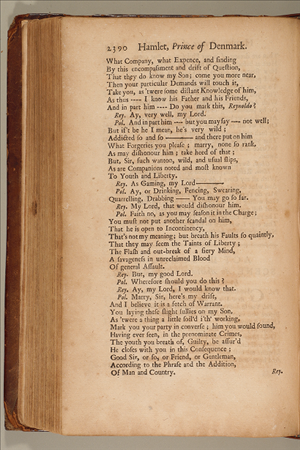 2390 Hamlet, Prince of Denmark.
What Company, what Expence, and finding
By this encompassment and drift of Question,
That they do know my Son; come you more near,
Then your particular Demands will touch it,
Take you, as 'twere some distant Knowledge of him,
As thus ---- I know his Father and his Friends,
And in part him ---- Do you mark this, Reynoldo?
Rey. Ay, very well, my Lord.
Pol. And in part him — but you may say — not well;
But if't be he I mean, he's very wild;
Addicted to and so ——— and there put on him
What Forgeries you please; marry, none so rank,
As may dishonour him; take heed of that;
But, Sir, such wanton, wild, and usual slips,
As are Companions noted and most known
To Youth and Liberty.
Rey. As Gaming, my Lord———
Pol. Ay, or Drinking, Fencing, Swearing,
Quarrelling, Drabbing —— You may go so far.
Rey. My Lord, that would dishonour him.
Pol. Faith no, as you may season it in the Charge;
You must not put another scandal on him,
That he is open to Incontinency,
That's not my meaning; but breath his Faults so quaintly,
That they may seem the Taints of Liberty;
The Flash and out-break of a fiery Mind,
A savageness in unreclaimed Blood
Of general Assault.
Rey. But, my good Lord.
Pol. Wherefore should you do this?
Rey. Ay, my Lord, I would know that.
Pol. Marry, Sir, here's my drift,
And I believe it is a fetch of Warrant.
You laying these slight sullies on my Son,
As 'twere a thing a little soil'd i'th' working,
Mark you your party in converse; him you would sound,
Having ever seen, in the prenominate Crimes,
The youth you breath of, Guilty, be assur'd
He closes with you in this Consequence;
Good Sir, or so, or Friend, or Gentleman,
According to the Phrase and the Addition,
Of Man and Country. Rey.